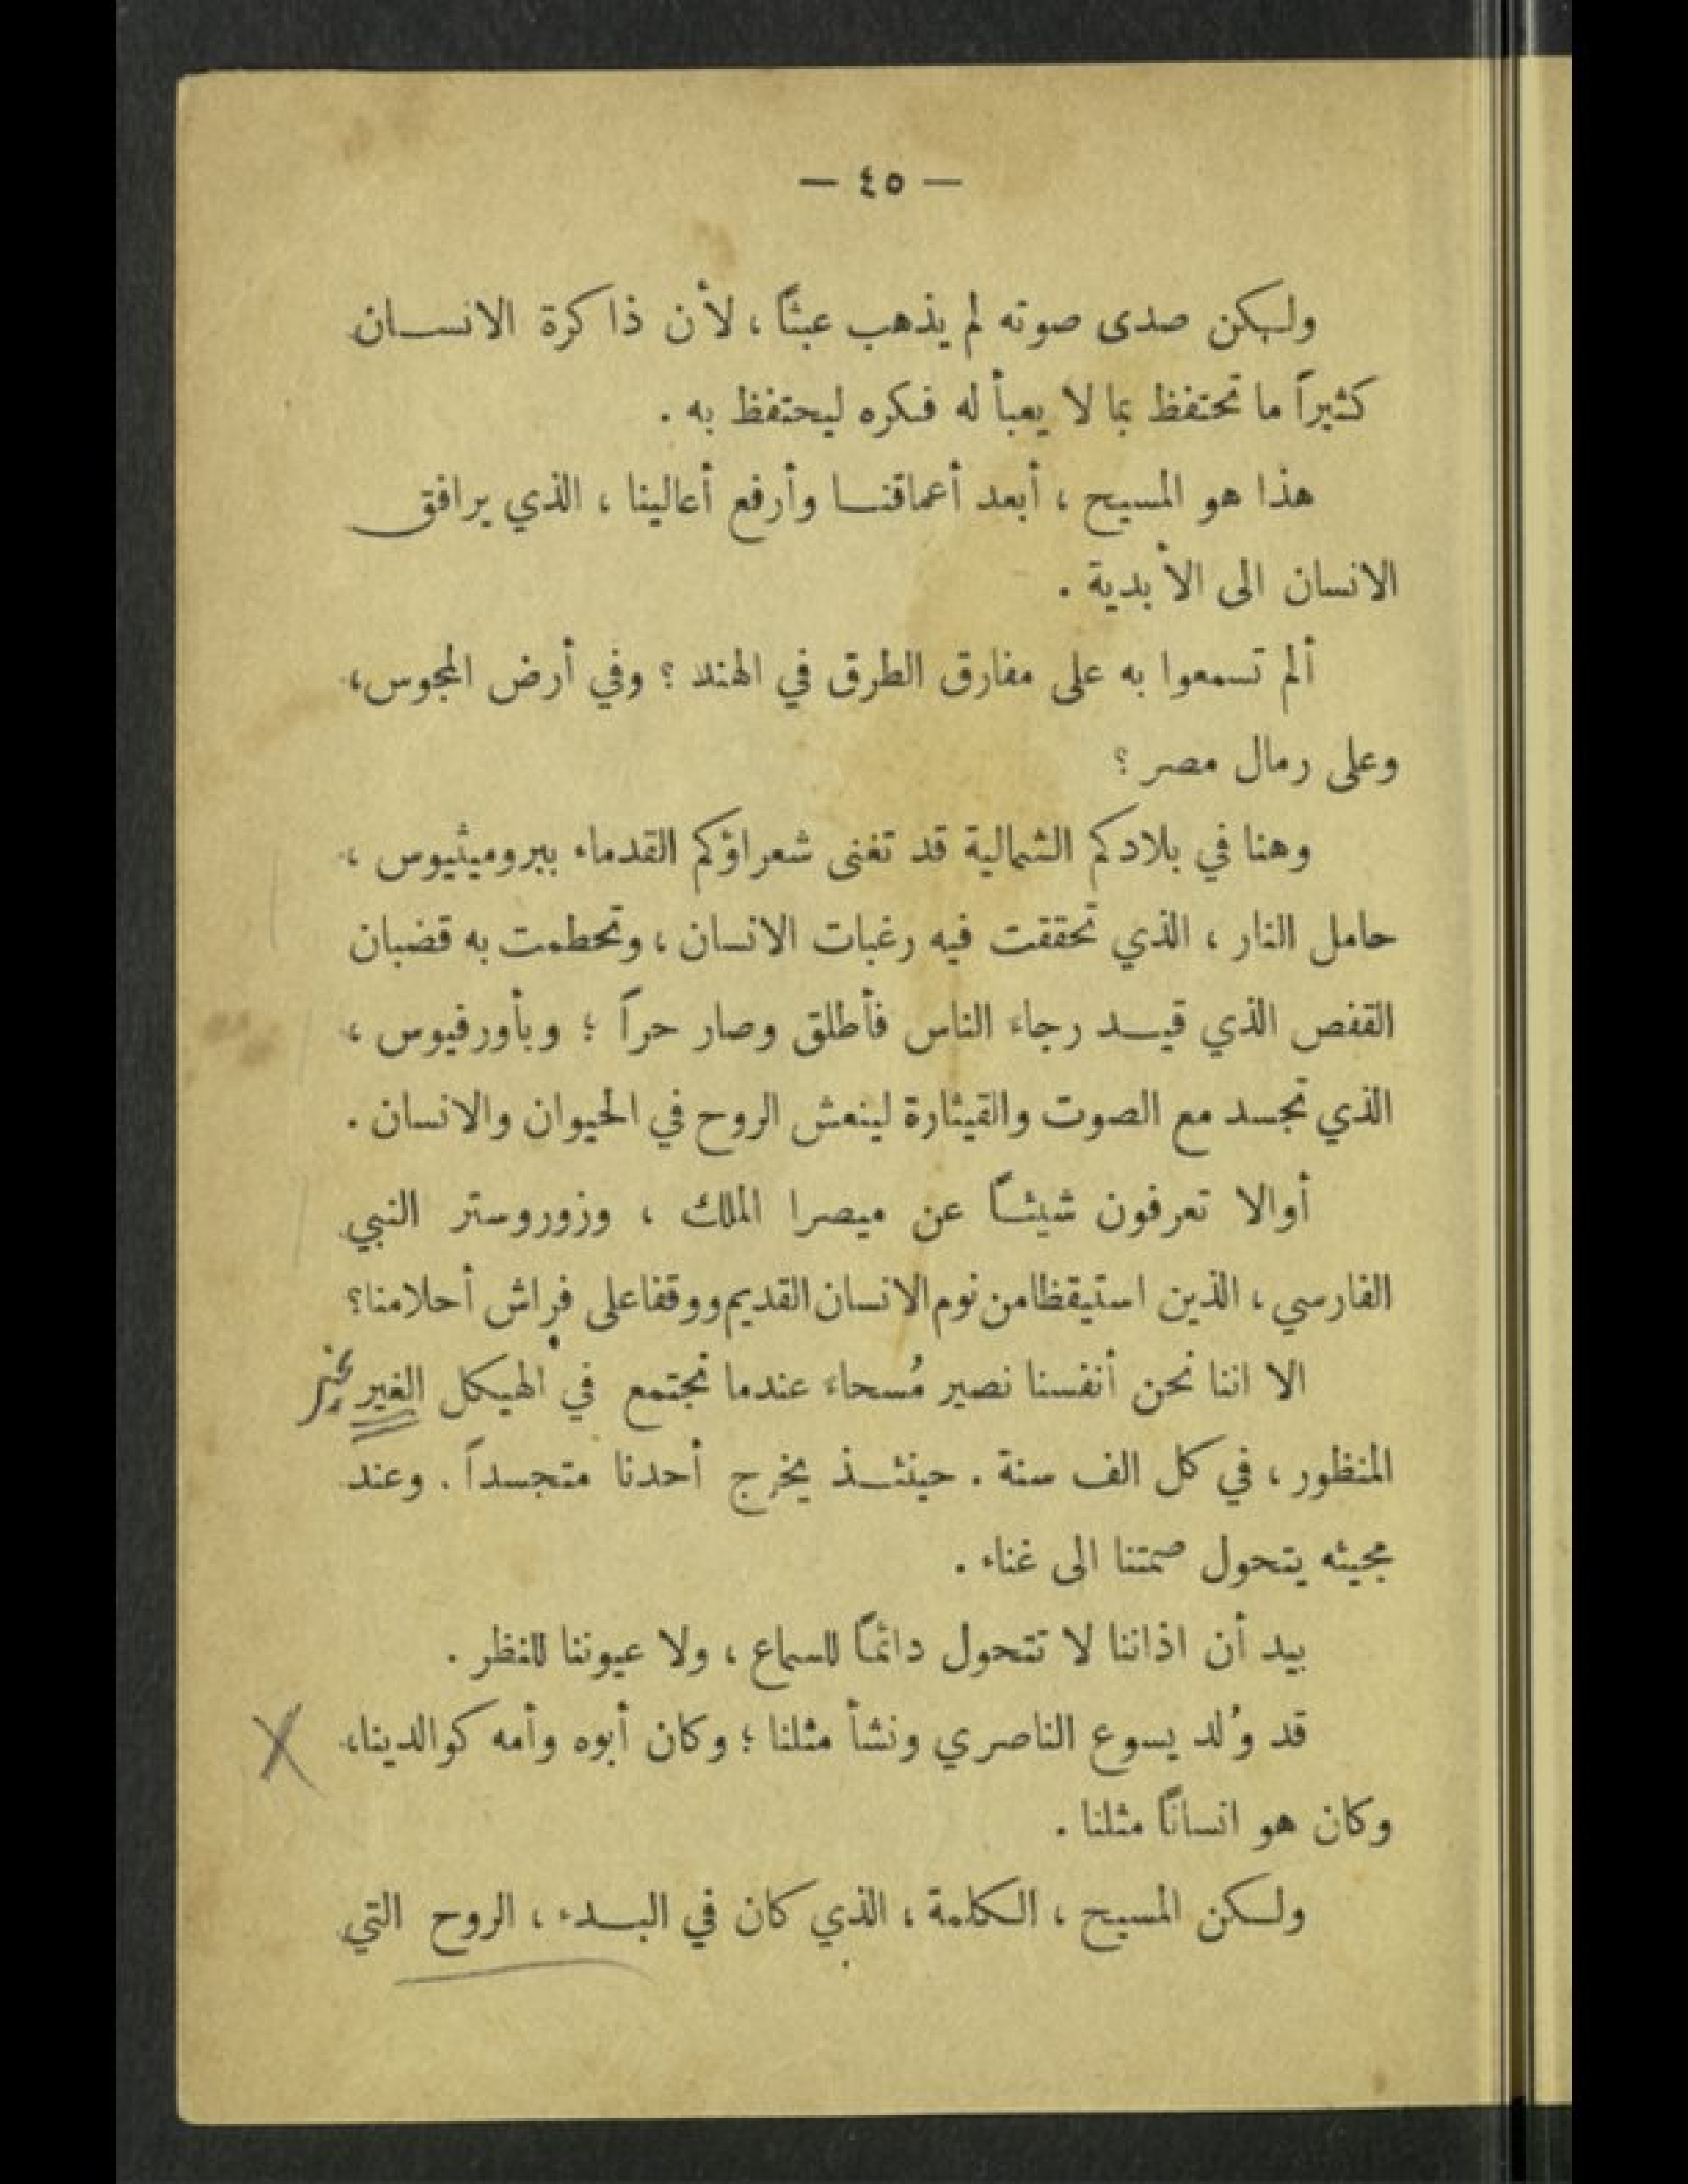 — ٤٥ —
ولكن صدى صوته لم يذهب عبثاً ، لأن ذاكرة الانسان
كثيراً ما تحتفظ بما لا يعبأ له فكره ليحتفظ به .
هذا هو المسيح ، أبعد أعماقنا وأرفع أعالينا ، الذي يرافق
الانسان الى الأبدية .
ألم تسمعوا به على مفارق الطرق في الهند ؟ وفي أرض المجوس ،
وعلى رمال مصر ؟
وهنا في بلادكم الشمالية قد تغنى شعراؤكم القدماء ببروميثيوس ،
حامل النار ، الذي تحققت فيه رغبات الانسان ، وتحطمت به قضبان
القفص الذي قيد رجاء الناس فأطلق وصار حراً ؛ وبأورفيوس ،
الذي تجسد مع الصوت والقيثارة لينعش الروح في الحيوان والانسان .
أوالا تعرفون شيئاً عن ميصرا الملك ، وزوروستر النبي
الفارسي ، الذين استيقظا من نوم الانسان القديم ووقفا على فراش أحلامنا؟
الا اننا نحن أنفسنا نصير مُسحاء عندما نجتمع في الهيكل الغير
المنظور ، في كل الف سنة . حينئذ يخرج أحدنا متجسداً . وعند
مجيئه يتحول صمتنا الى غناء .
بيد أن اذاننا لا تتحول دائماً للسماع ، ولا عيوننا للنظر .
قد وُلد يسوع الناصري ونشأ مثلنا ؛ وكان أبوه وأمه كوالدينا ،
وكان هو انساناً مثلنا .
ولكن المسيح ، الكلمة ، الذي كان في البدء ، الروح التي